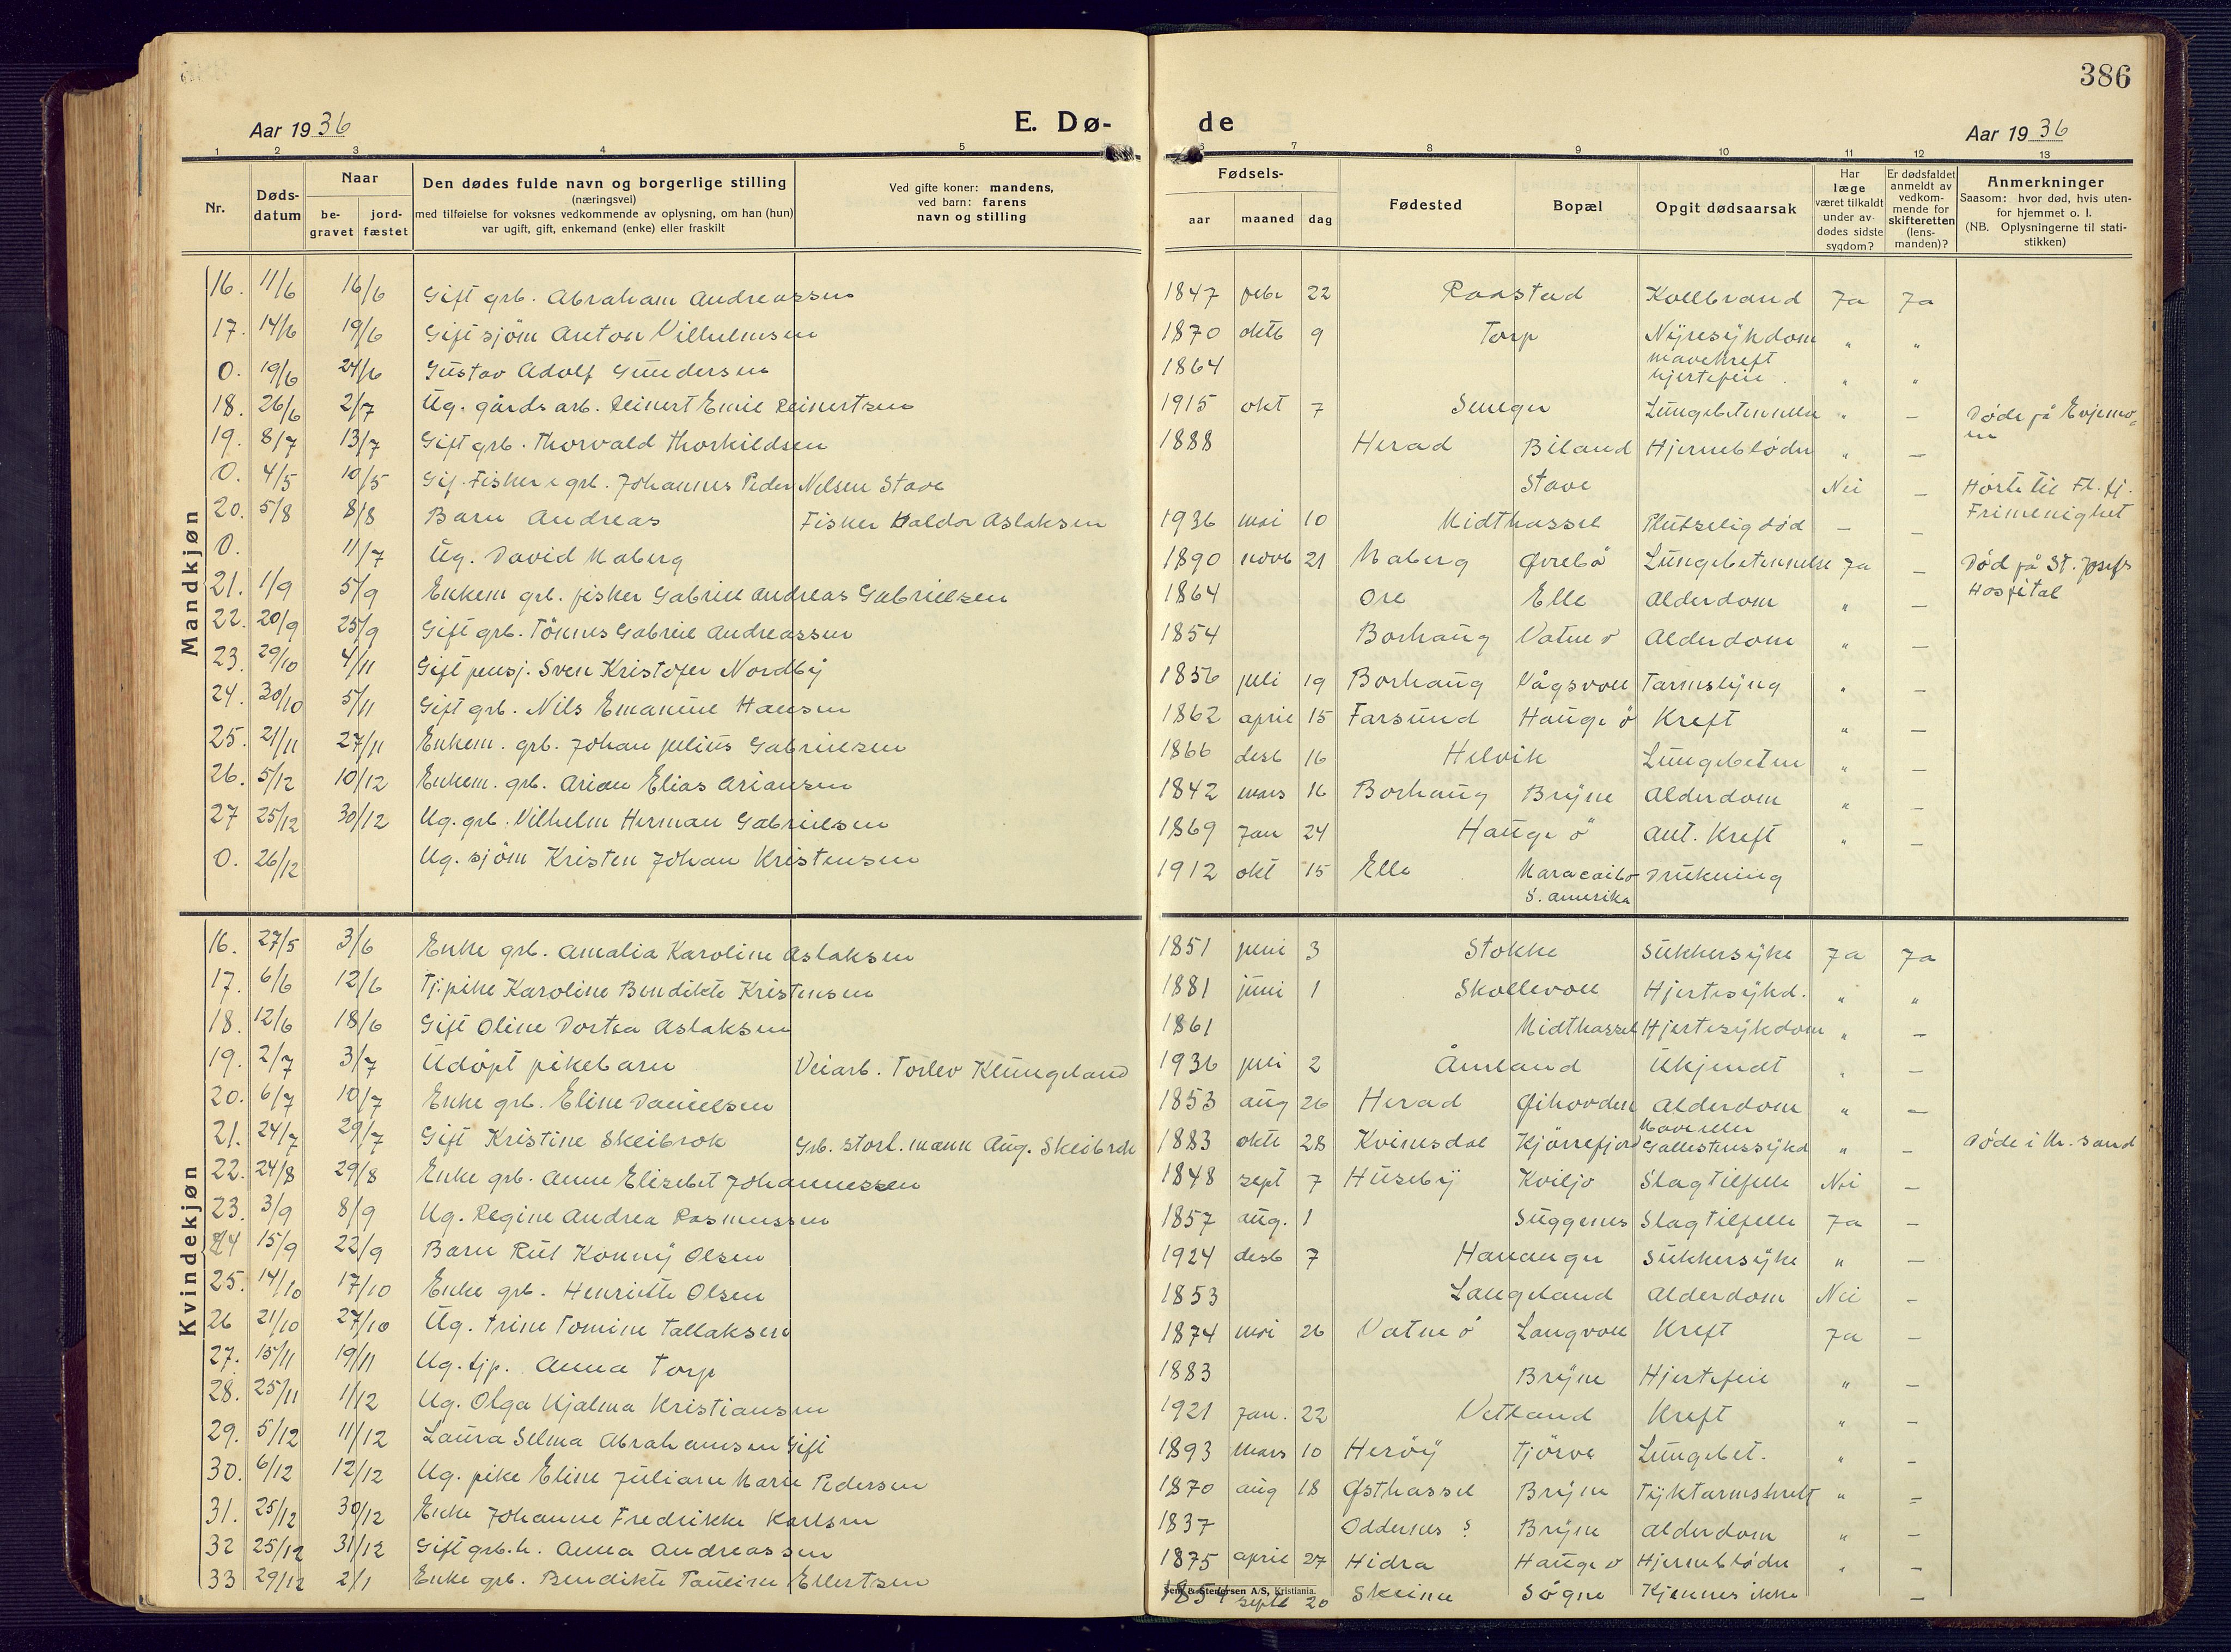 386
Aar 1936
E. Dø-
de
Aar 1936
1 2 3 4 5 6 7 8 9 10 11 12 13
Nr.
Døds-
datum
Naar
be-
gravet
jord-
fæstet
Den dødes fulde navn og borgerlige stilling
(næringsvei)
med tilføielse for voksnes vedkommende av oplysning, om han (hun)
var ugift, gift, enkemand (enke) eller fraskilt
Ved gifte koner: mandens,
ved barn: farens
navn og stilling
Fødsels-
aar maaned dag
Fødested
Bopæl
Opgit dødsaarsak
Har
læge
været tilkaldt
under av-
dødes sidste
sygdom?
Er dødsfaldet
anmeldt av
vedkom-
mende for
skifteretten
(lens-
manden)?
Anmerkninger
Saasom: hvor død, hvis uten-
for hjemmet o. l.
(NB. Oplysningerne til stati-
stikken)
Mandkjøn
16. 11/6 16/6 Gift grb. Abraham Andreassen 1847 febr 22 Raastad Kollbrand Ja Ja
17. 14/6 19/6 Gift sjøm Anton Vilhelmsen 1870 oktb 9 Torp Nyresykdom " "
0. 19/6 24/6 Gustav Adolf Gundersen 1864 mavekreft
hjertefeil " "
18. 26/6 2/7 Ug. gårdsarb. Reinert Emil Reinertsen 1915 okt 7 Lungebetennelse " – Døde på Evjemo-
en
19. 8/7 13/7 Gift grb. Thorvald Thorkildsen 1888 Herad Biland Hjerneblødn " –
0. 4/5 10/5 Gif. Fisker e grb. Johannes Peder Nilsen Stave Stave Nei – Hørte til Fl. fj.
Frimenighet
20. 5/8 8/8 Barn Andreas Fisker Haldor Aslaksen 1936 mai 10 Midthassel Plutselig død – –
0. 11/7 Ug. David Maberg 1890 novb 21 Maberg Øvrebø Lungebetennelse Ja – Død på St. Josefs
Hospital
21. 1/9 5/9 Enkem grb. fisker Gabriel Andreas Gabrielsen 1864 Ore Elle Alderdom " –
22. 20/9 25/9 Gift grb. Tønnes Gabriel Andreassen 1854 Borhaug Vatne ø Alderdom " –
23. 29/10 4/11 Gift pensj. Sven Kristofer Nordby 1856 juli 19 Borhaug Vågsvoll Tarmslyng " –
24. 30/10 5/11 Gift grb. Nils Emanuel Hansen 1862 april 15 Farsund Hauge ø Kreft " –
25. 21/11 27/11 Enkem. grb. Johan Julius Gabrielsen 1866 desb 16 Helvik Lungebeten " –
26. 5/12 10/12 Enkem. grb. Arian Elias Ariansen 1842 mars 16 Borhaug Bryne Alderdom " –
27 25/12 30/12 Ug. grb. Vilhelm Herman Gabrielsen 1869 Jan 24 Hauge ø Ant. Kreft " –
0. 26/12 Ug. sjøm Kristen Johan Kristensen 1912 okt 15 Elle Maracaibo Drukning
S. amerika
Kvindekjøn
16. 27/5 3/6 Enke grb. Amalia Karoline Aslaksen 1851 juni 3 Stokke Sukkersyke Ja Ja
17. 6/6 12/6 Tj. pike Karoline Bendikte Kristensen 1881 juni 1 Skollevoll Hjertesykd. " "
18. 12/6 18/6 Gift Oline Dortea Aslaksen 1861 Midthassel Hjertesykdom " –
19. 2/7 3/7 Udøpt pikebarn Veiarb. Torlev Klungeland 1936 juli 2 Åmland Ukjendt " –
20. 6/7 10/7 Enke grb. Eline Danielsen 1853 aug 26 Herad Øihovden Alderdom " –
21. 24/7 29/7 Gift Kristine Skeibrok Grb. storl. mann Aug. Skeibrok 1883 oktb 28 Kvinesdal Kjørrefjord Mave eller
Gallestenssykd " – Døde i Kr.sand
22. 24/8 29/8 Enke grb. Anne Elisebet Johannessen 1848 sept 7 Huseby Kviljo Slagtilfelle Nei –
23. 3/9 8/9 Ug. Regine Andrea Rasmussen 1857 aug. 1 Suggenes Slagtilfelle Ja –
24 15/9 22/9 Barn Rut Konny Olsen 1924 desb 7 Hananger Sukkersyke " –
25. 14/10 17/10 Enke grb. Henriette Olsen 1853 Langeland Alderdom Nei –
26 21/10 27/10 Ug. Trine Tomine Tallaksen 1874 mai 26 Vatne ø Langvoll Kreft Ja –
27. 15/11 19/11 Ug. tjp. Anna Torp 1883 Bryne Hjertefeil " –
28. 25/11 1/12 Ug. Olga Hjalma Kristiansen 1921 Jan. 22 Vetland Kreft " –
29. 5/12 11/12 Laura Selma Abrahamsen Gift 1893 mars 10 Herøy Tjørve Lungebet. " –
30. 6/12 12/12 Ug. pike Eline Juliane Marie Pedersen 1870 aug 18 Østhassel Bryne Tyktarmskreft " –
31. 25/12 30/12 Enke Johanne Fredrikke Karlsen 1837 Oddernes ? Bryne Alderdom " –
32 25/12 31/12 Gift grb.h. Anna Andreassen 1875 april 27 Hidra Hauge ø Hjerneblødn " –
33 29/12 2/1 Enke grb. Bendikte Pauline Ellertsen 1854 septb 20 Skeine Søgne Kjennes ikke –
Sem & Stenersen A/S, Kristiania.